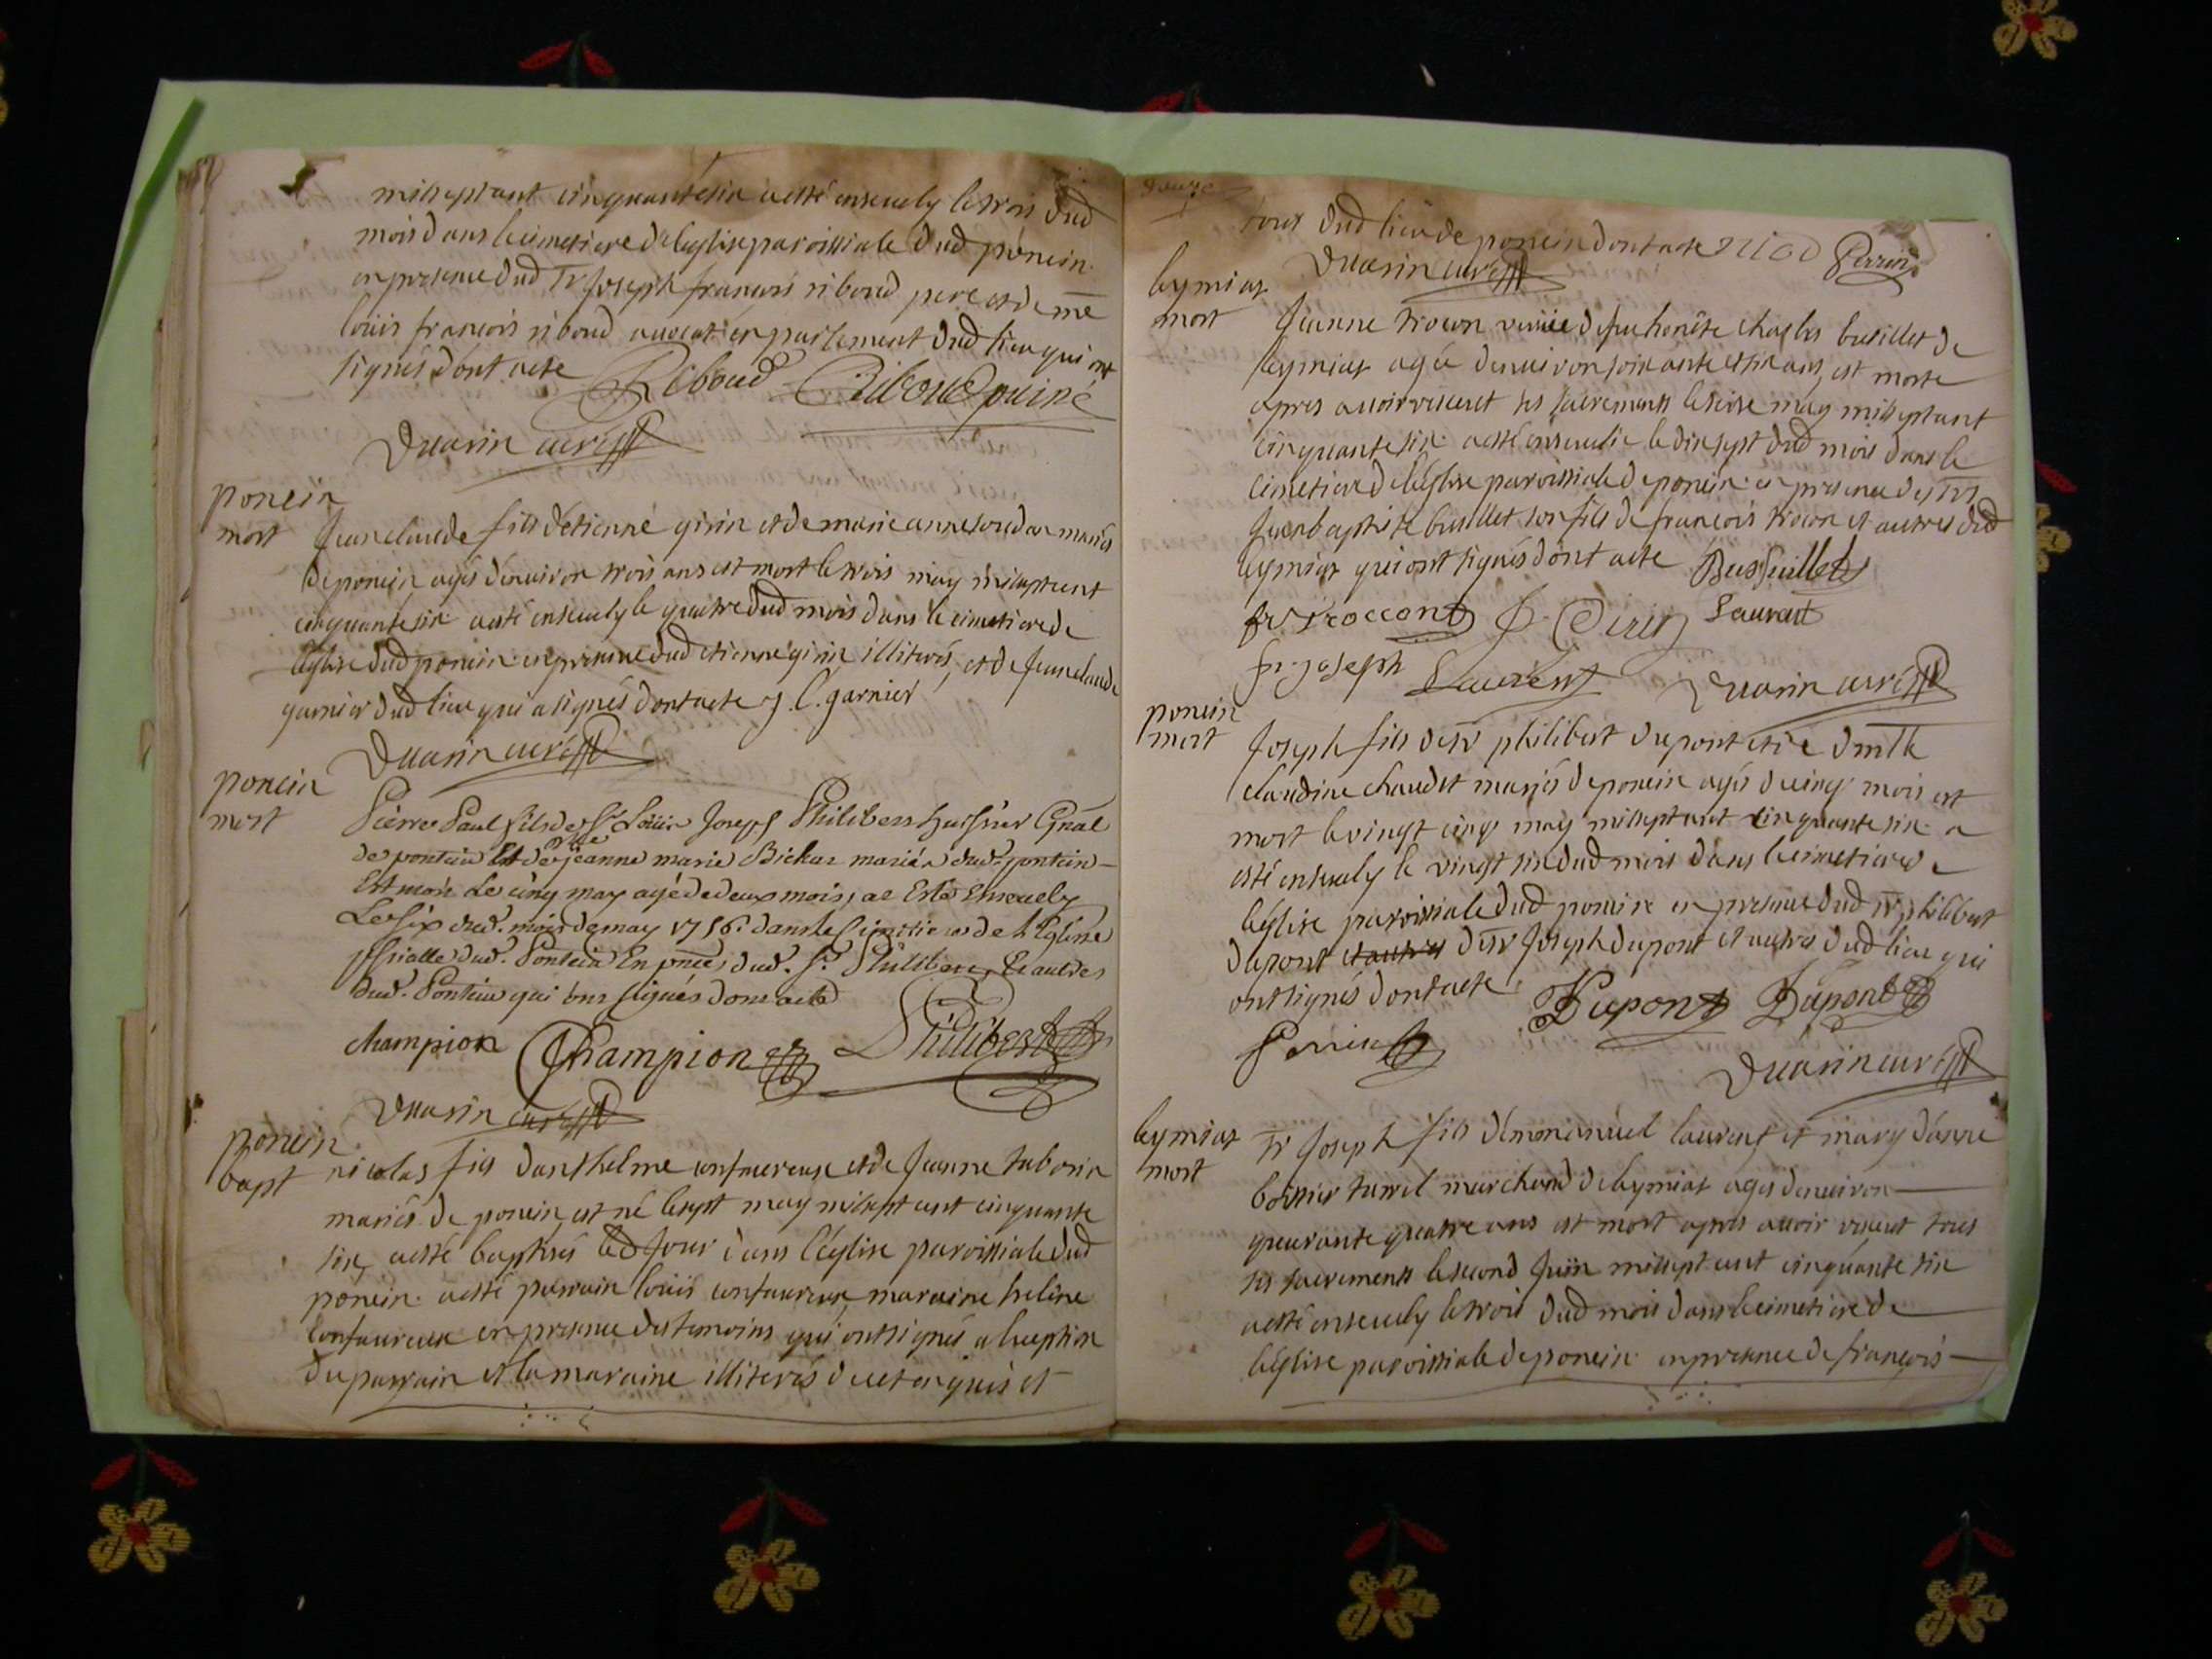 mil sept cent cinquante six a esté ensevely le trois dud
mois dans le cimetiere de l'eglise paroissiale dud poncin
en presence dud sr Joseph françois riboud pere et de me
louis françois riboud avocat en parlement dud lieu qui ont
signés dont acte Riboud Riboud puiné
Duarin curé
poncin
mort
Jean claude fils d'etienne girin et de marie anne mariés
de poncin agés d'environ trois ans est mort le trois may mil sept cent
cinquante six a esté ensevely le quatre dud mois dans le cimetiere de
l'eglise dud poncin en presence dud etienne girin illiterés, et de Jean claude
garnier dud lieu qui a signés dont acte J. C. garnier
Duarin curé
poncin
mort
Pierre Paul fils de Sr Louis Joseph Philibert huissier Gnãl
de pontcin Et de dlle jeanne marie mariés dud. pontcin
Est mort Le cinq may agé de deux mois, a Esté Ensevely
Le six dud. mois de may 1756. dans le Cimetiere de l'Eglise
dud. Pontcin En pñce dud. Sr. Philibert, Et autres
dud. Pontcin qui ont signés dont acte
champion Champion Philibert
Duarin curé
poncin
bapt
nicolas fils d'anthelme confavreux et de Jeanne tabouin
mariés de poncin, est né le sept may mil sept cent cinquante
six, a esté baptisés led Jour dans l'église paroissiale dud
poncin a esté parrain louis confavreux, maraine heline
confavreux en presence des temoins qui ont signés a l'exception
du parrain et la maraine illiterés de ce enquis et
tous dud lieu de poncin dont acte Perrin
Duarin curé
leymiat
mort
Jeanne trocon veuve de feu honête charles busillet de
leymiat agée d'environ soixante et six ans, est morte
apres avoir receut ses sacrements le seize may mil sept cent
cinquante six a esté ensevelie le dix sept dud mois dans le
cimetiere de l'église paroissiale de poncin en presence des srs
Jean baptiste busillet son fils de françois trocon et autres dud
leymiat qui ont signés dont acte Bussuillet
fr troccon J. Girin Laurent
fr. joseph Laurent Duarin curé
poncin
mort
Joseph fils de sr philibert dupont et de dmlle
claudine chaudet mariés de poncin agés de cinq mois est
mort le vingt cinq may mil sept cent cinquante six a
esté ensevely le vingt six dud mois dans le cimetiere de
l'église paroissiale dud poncin en presence dud sr philibert
dupont et autres de sr Joseph dupont et autres dud lieu qui
ont signés dont acte Dupont Dupont
Perrin
Duarin curé
leymiat
mort
sr Joseph fils d'emmanuel laurent et mary d'anne
marchand de leymiat agés d'environ
quarante quatre ans est mort apres avoir receut tous
ses sacrements le second Juin mil sept cent cinquante six
a esté ensevely le trois dud mois dans le cimetiere de
l'église paroissiale de poncin en presence de françois